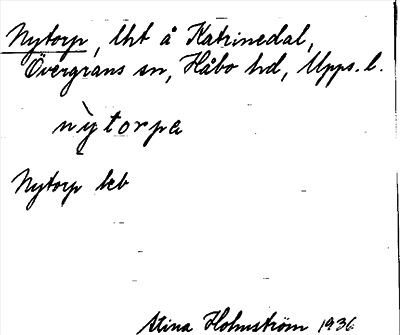 Nytorp, lht å Katrinedal,
Övergrans sn, Håbo hd, Upps. l.
nỳtorpa
Nytorp leb
Stina Holmström 1936